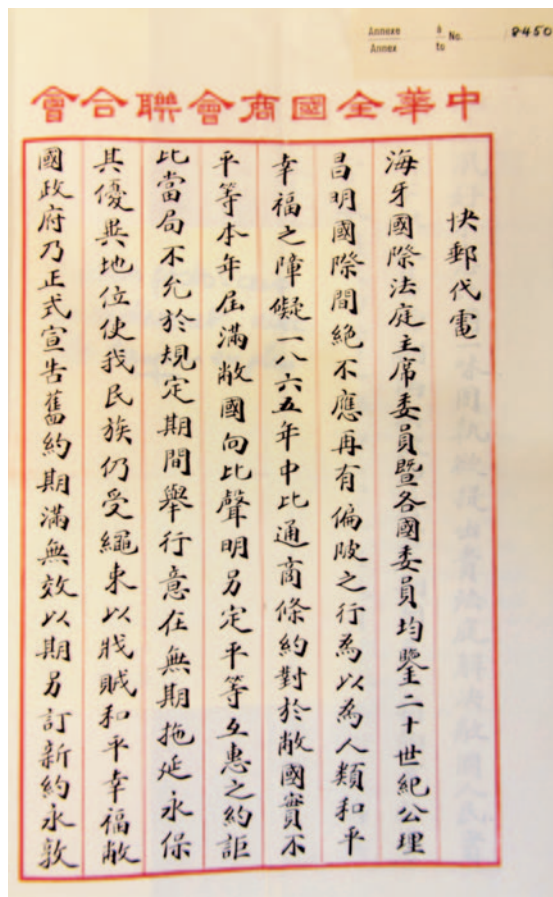 Annexe à
Annex to No. 8450
中華全國商會聯合會
快郵代電
海牙國際法庭主席委員暨各國委員均鑒二十世紀公理
昌明國際間絶不應再有偏陂之行為以為人類和平
幸福之障礙一八六五年中比通商條約對於敝國實不
平等本年屆滿敝國向比聲明另定平等互惠之約詎
比當局不允於規定期間舉行意在無期拖延永保
其優異地位使我民族仍受繩束以戕賊和平幸福敝
國政府乃正式宣告舊約期滿無效以期另訂新約永敦